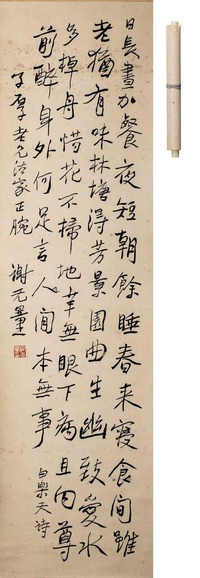 日長晝加餐夜短朝餘睡春來寢食間雖
老猶有味林塘得芳景園曲生幽致愛水
多掉舟惜花不掃地幸無眼下病且向尊
前醉身外何足言人間本無事
白樂天詩
子厚老兄法家正腕
謝无量